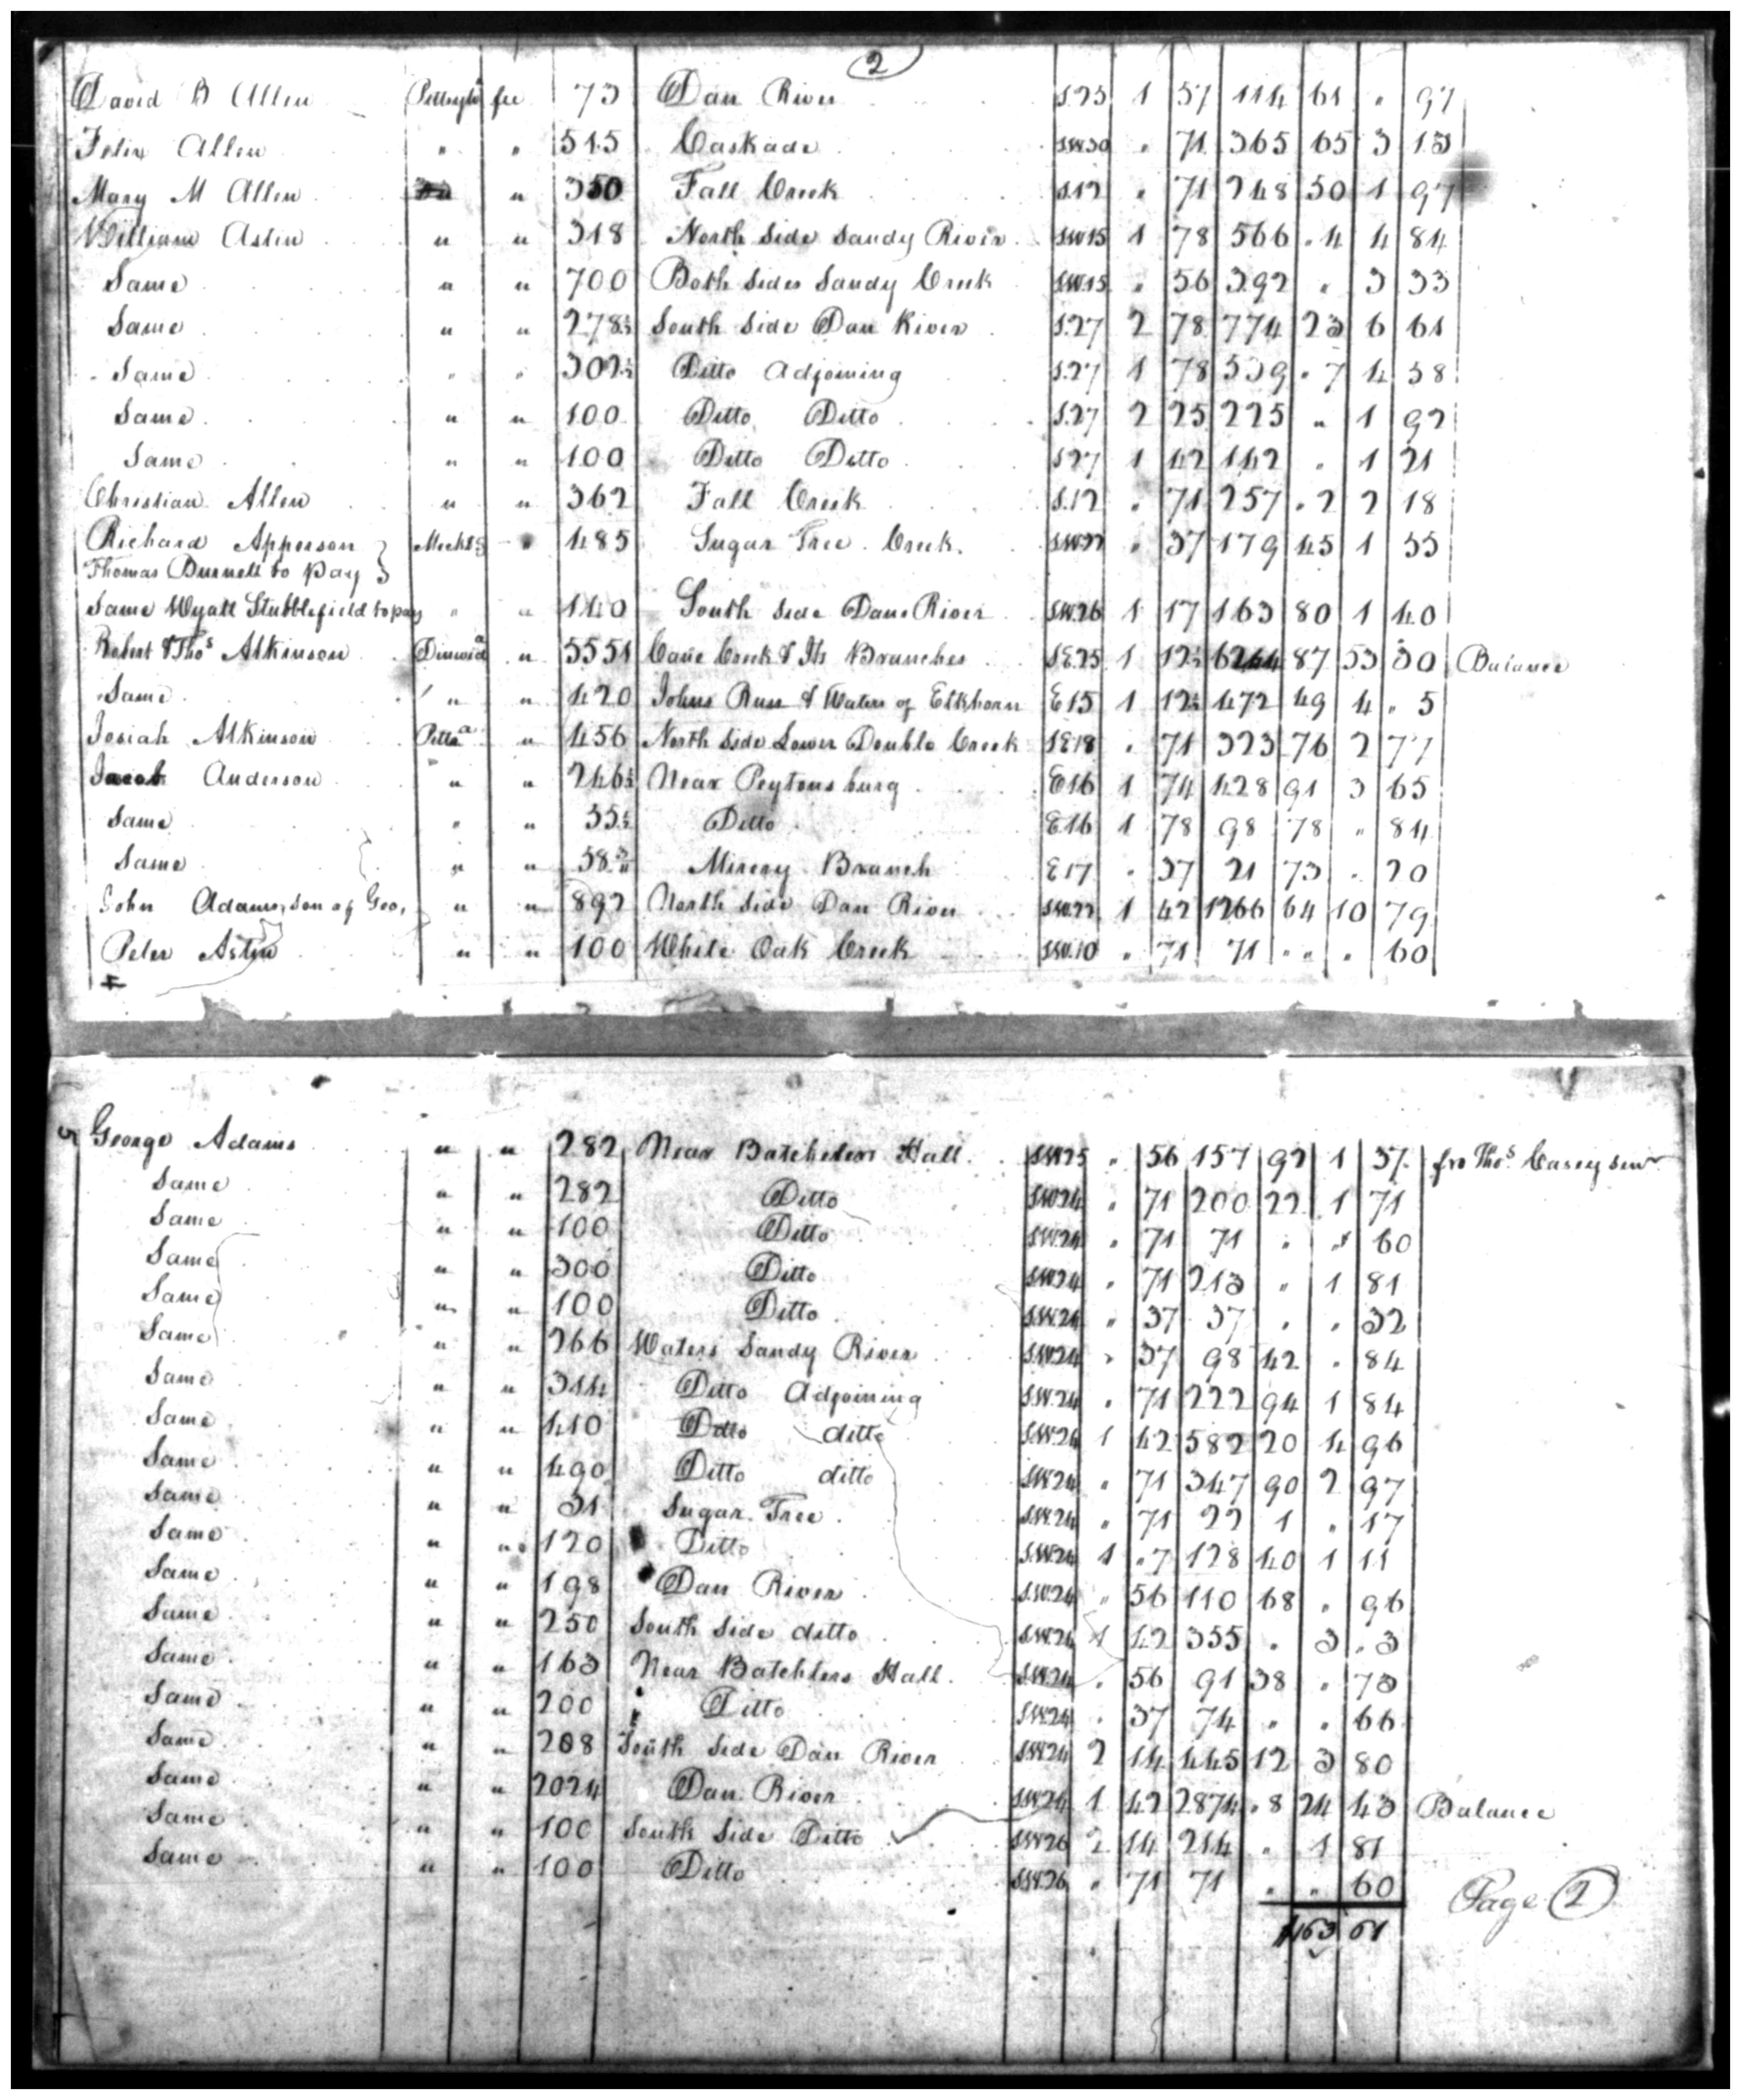 2
David B Allen Pittsylva fee 73 Dan River S.23 1 57 114 61 " 97
Felix Allen " " 515 Caskade S.W.30 " 71 365 65 3 13
Mary M Allen " 350 Fall Creek S.12 " 71 248 50 1 97
William Astin " " 318 North Side Sandy River S.W.15 1 78 566 .4 4 84
Same " " 700 Both Sides Sandy Creek S.W.15 " 56 392 " 3 33
Same " " 278½ South Side Dan River S.27 2 78 774 23 6 61
Same " " 302½ Ditto Adjoining S.27 1 78 539 .7 4 58
Same " " 100 Ditto Ditto S.27 2 25 225 " 1 92
Same " " 100 Ditto Ditto S.27 1 42 142 " 1 21
Christian Allen " " 362 Fall Creek S.12 " 71 257 .2 2 18
Richard Apperson Meckl.g " 485 Sugar Tree Creek S.W.22 " 37 179 45 1 53
Thomas Burnett to pay
Same Wyatt Stubblefield to pay " " 140 South Side Dan River S.W.26 1 17 163 80 1 40
Robert & Thos Atkinson Dinwida " 5551 Cane Creek & Its Branches S.E.25 1 12½ 6244 87 53 30 Balance
Same " " 420 Johns Run & Waters of Elkhorn E15 1 12½ 472 49 4 . 5
Josiah Atkinson Pittsa " 456 North Side Lower Double Creek S.E.18 " 71 323 76 2 77
Jacob Anderson " " 246½ Near Peytonsburg E16 1 74 428 91 3 65
Same " " 55½ Ditto E.16 1 78 98 78 " 84
Same " " 58¾ Mirery Branch E17 " 37 21 73 . 20
John Adams, son of Geo, " " 892 North Side Dan River S.W.22 1 42 1266 64 10 79
Peter Astin " " 100 White Oak Creek S.W.10 " 71 71 " " " 60
George Adams " " 282 Near Batchelers Hall S.W.25 " 56 157 92 1 37 fro Thos Casey senr
Same " " 282 Ditto S.W.24 " 71 200 22 1 71
Same " " 100 Ditto S.W.24 " 71 71 " " 60
Same " " 300 Ditto S.W.24 " 71 213 " 1 81
Same " " 100 Ditto S.W.24 " 37 37 " " 32
Same " " 266 Waters Sandy River S.W.24 " 37 98 42 " 84
Same " " 314 Ditto Adjoining S.W.24 " 71 222 94 1 84
Same " " 410 Ditto ditto S.W.24 1 42 582 20 4 96
Same " " 490 Ditto ditto S.W.24 " 71 347 90 2 97
Same " " 31 Sugar Tree S.W.24 " 71 22 1 " 17
Same " " 120 Ditto S.W.24 1 .7 128 40 1 11
Same " " 198 Dan River S.W.24 " 56 110 68 " 96
Same " " 250 South Side ditto S.W.26 1 42 355 . 3 . 3
Same " " 163 Near Batchlers Hall S.W.24 " 56 91 38 " 78
Same " " 200 Ditto S.W.24 " 37 74 " " 66
Same " " 208 South Side Dan River S.W.24 2 14 445 12 3 80
Same " " 2024 Dan River S.W.24 1 42 2874 .8 24 43 Balance
Same " " 100 South Side Ditto S.W.26 2 14 214 " 1 81
Same " " 100 Ditto S.W.26 " 71 71 " " 60
Page 2
163 61